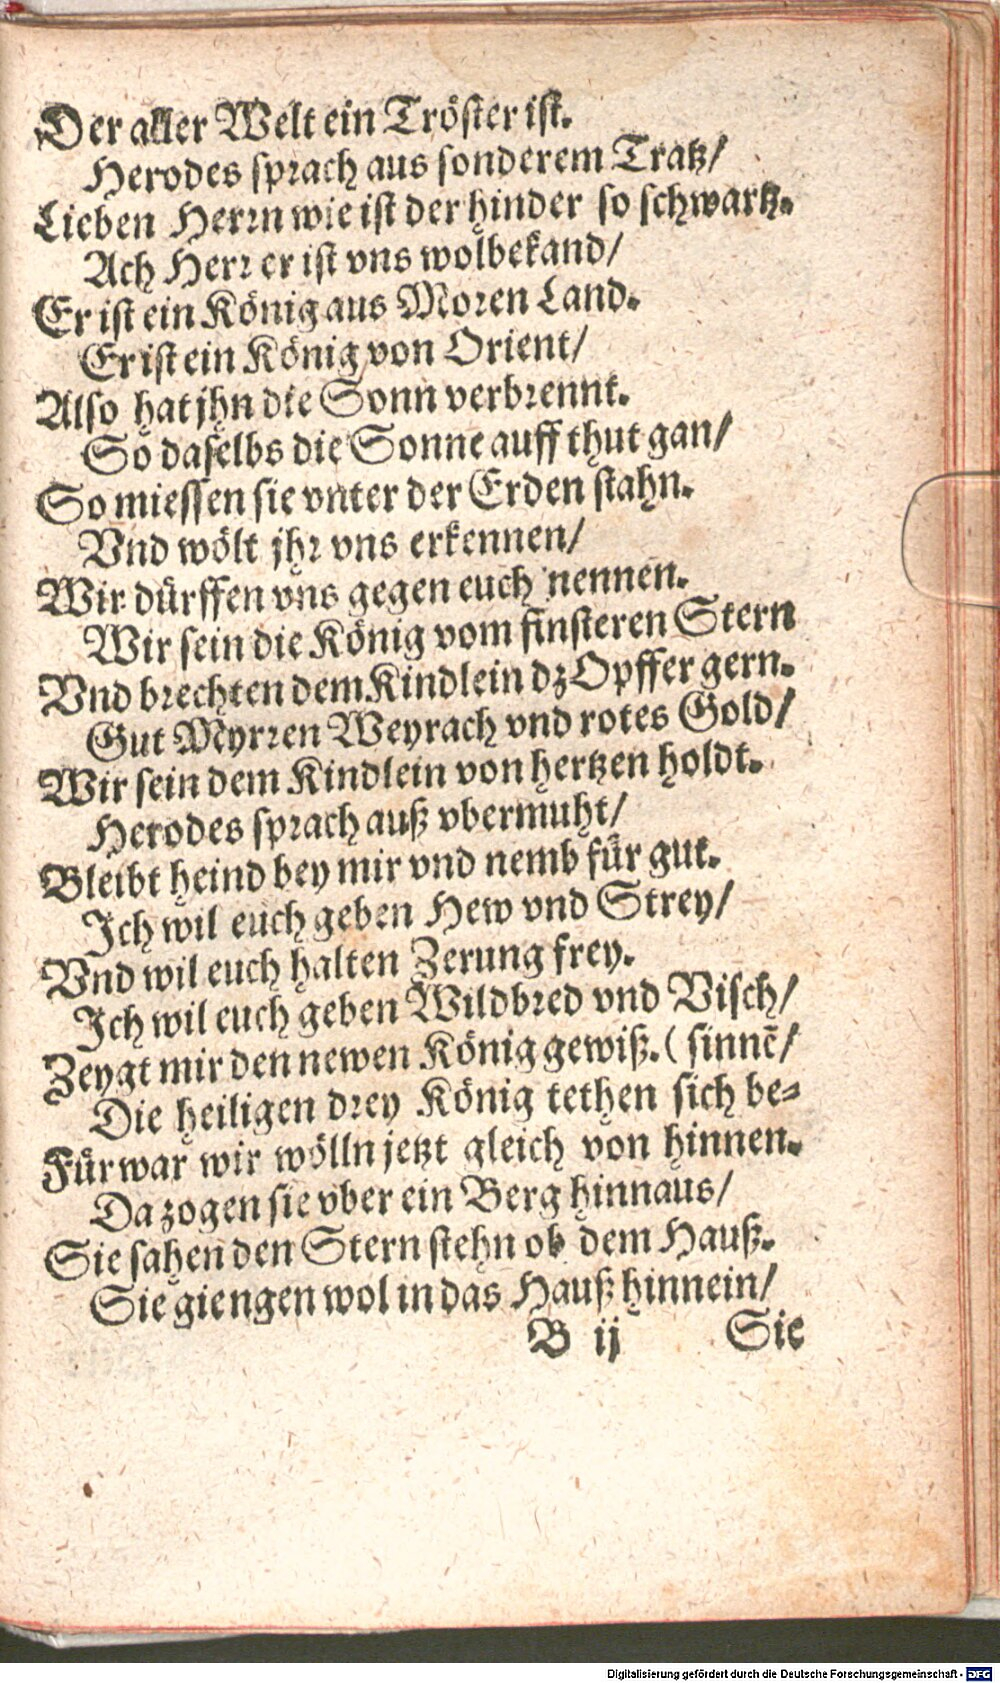 Der aller Welt ein Tröster ist.
Herodes sprach aus sonderem Tratz/
Lieben Herrn wie ist der hinder so schwartz.
Ach Herr er ist vns wolbekand/
Er ist ein König aus Moren Land.
Er ist ein König von Orient/
Also hat jhn die Sonn verbrennt.
So daselbs die Sonne auff thut gan/
So miessen sie vnter der Erden stahn.
Vnd wölt jhr vns erkennen/
Wir dürffen vns gegen euch nennen.
Wir sein die König vom finsteren Stern
Vnd brechten dem Kindlein dz Opffer gern.
Gut Myrren Weyrach vnd rotes Gold/
Wir sein dem Kindlein von hertzen holdt.
Herodes sprach auß vbermuht/
Bleibt heind bey mir vnd nemb für gut.
Ich wil euch geben Hew vnd Strey/
Vnd wil euch halten Zerung frey.
Ich wil euch geben Wildbred vnd Visch/
Zeygt mir den newen König gewiß. ( sinnē/
Die heiligen drey König tethen sich be-
Fürwar wir wölln jetzt gleich von hinnen.
Da zogen sie vber ein Berg hinnaus/
Sie sahen den Stern stehn ob dem Hauß.
Sie giengen wol in das Hauß hinnein/
B ij Sie
Digitalisierung gefördert durch die Deutsche Forschungsgemeinschaft - DFG